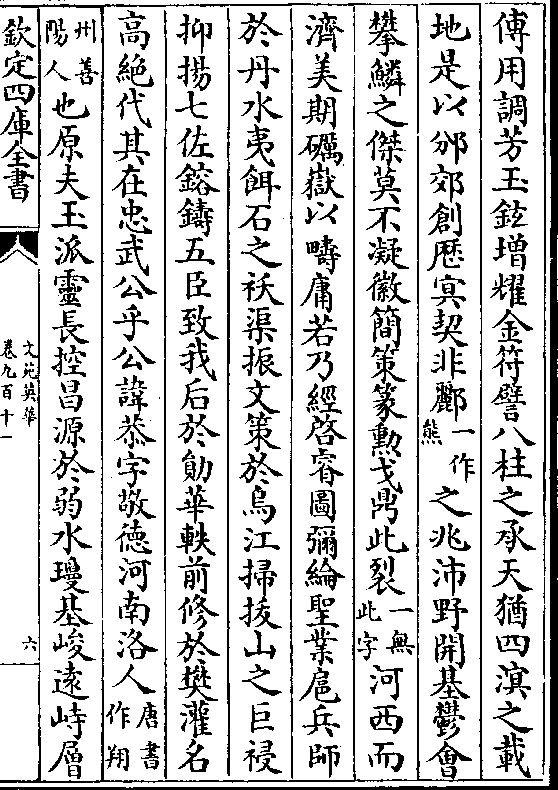 傅用調芳玉鉉增耀金符譬八柱之承天猶四溟之載
地是以邠郊創厯㝠契非酈一作熊之兆沛野開基鬱會
攀鱗之傑莫不凝徽簡策篆勲戈鼎此裂一無此字河西而
濟美期礪嶽以疇庸若乃經啓睿圖彌綸聖業扈兵師
於丹水夷餌石之祅渠振文策於烏江掃拔山之巨祲
抑揚七佐鎔鑄五臣致我后於勛華軼前修於樊灌名
高絶代其在忠武公乎公諱恭字敬德河南洛人唐書作翔
州善陽人也原夫玉派靈長控昌源於弱水瓊基峻逺峙層
欽定四庫全書
文苑英華
卷九百十一
六